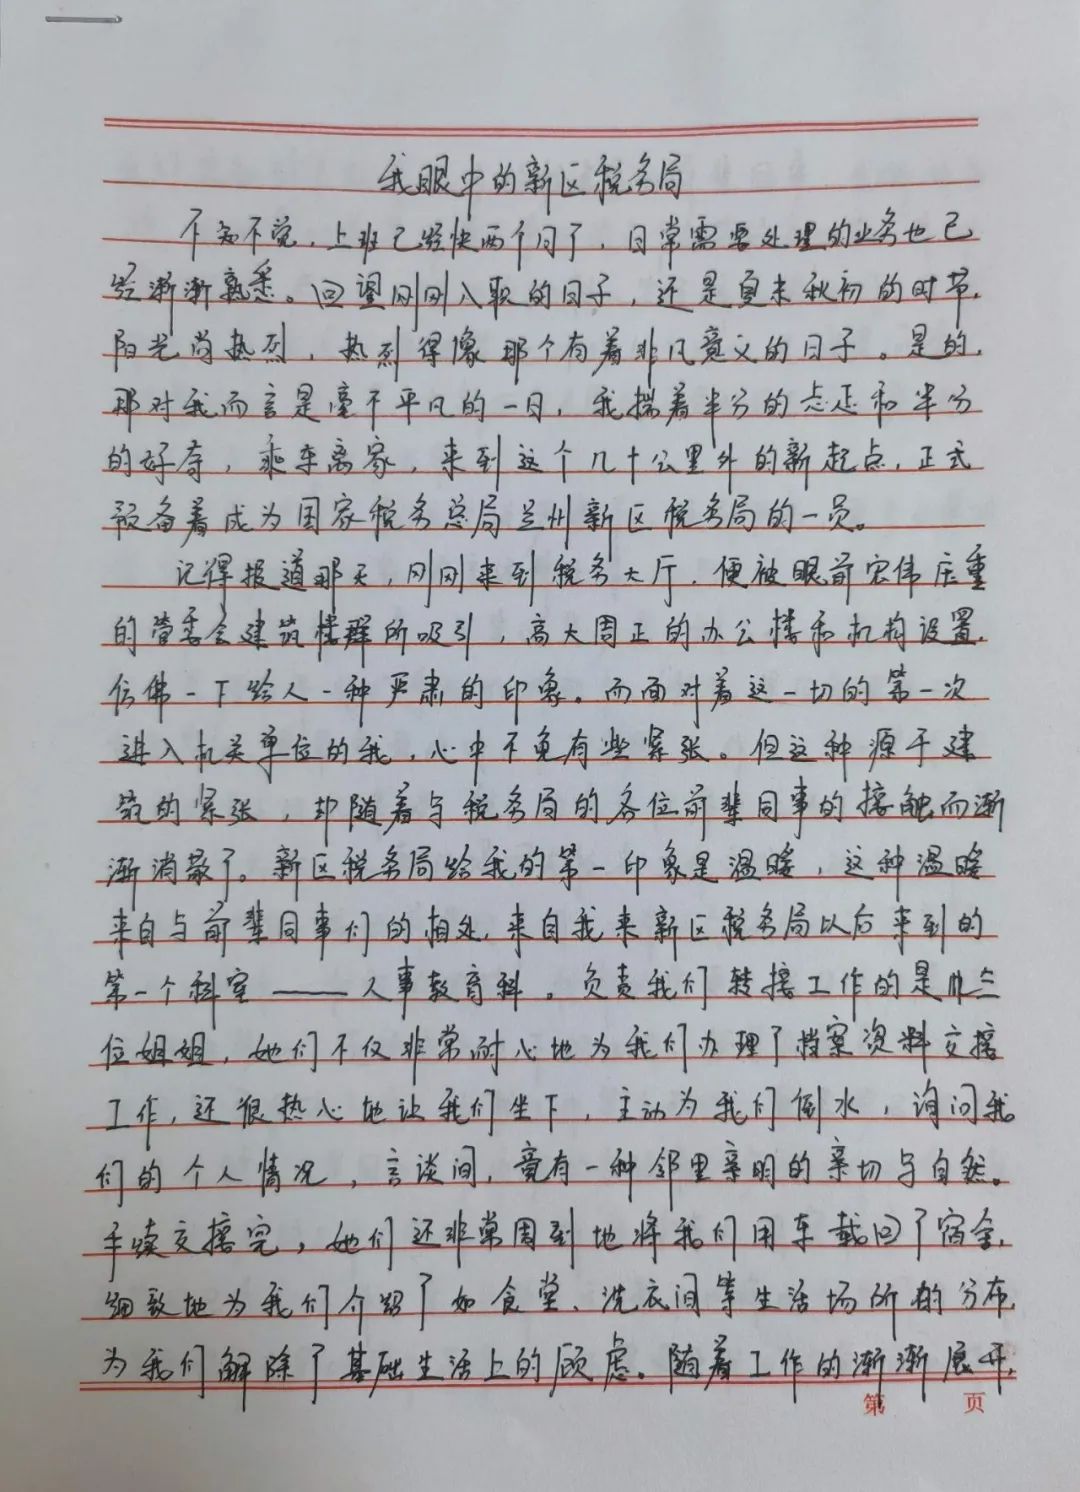 我眼中的新区税务局
不知不觉，上班已经快两个月了，日常需要处理的业务也已
经渐渐熟悉。回望刚刚入职的日子，还是夏末秋初的时节，
阳光尚热烈，热烈得像那个有着非凡意义的日子。是的，
那对我而言是毫不平凡的一日，我揣着半分的忐忑和半分
的好奇，乘车离家，来到这个几十公里外的新起点，正式
预备着成为国家税务总局兰州新区税务局的一员。
记得报道那天，刚刚来到税务大厅，便被眼前宏伟庄重
的管委会建筑楼群所吸引，高大周正的办公楼和机构设置，
仿佛一下给人一种严肃的印象。而面对着这一切的第一次
进入机关单位的我，心中不免有些紧张。但这种源于建
筑的紧张，却随着与税务局的各位前辈同事的接触而渐
渐消散了。新区税务局给我的第一印象是温暖，这种温暖
来自与前辈同事们的相处，来自我来新区税务局以后来到的
第一个科室——人事教育科。负责我们转接工作的是两三
位姐姐，她们不仅非常耐心地为我们办理了档案资料交接
工作，还很热心地让我们坐下，主动为我们倒水，询问我
们的个人情况，言谈间，竟有一种邻里亲朋的亲切与自然。
手续交接完，她们还非常周到地将我们用车载回了宿舍，
细致地为我们介绍了如食堂、洗衣间等生活场所的分布，
为我们解除了基础生活上的顾虑。随着工作的渐渐展开，
第 页